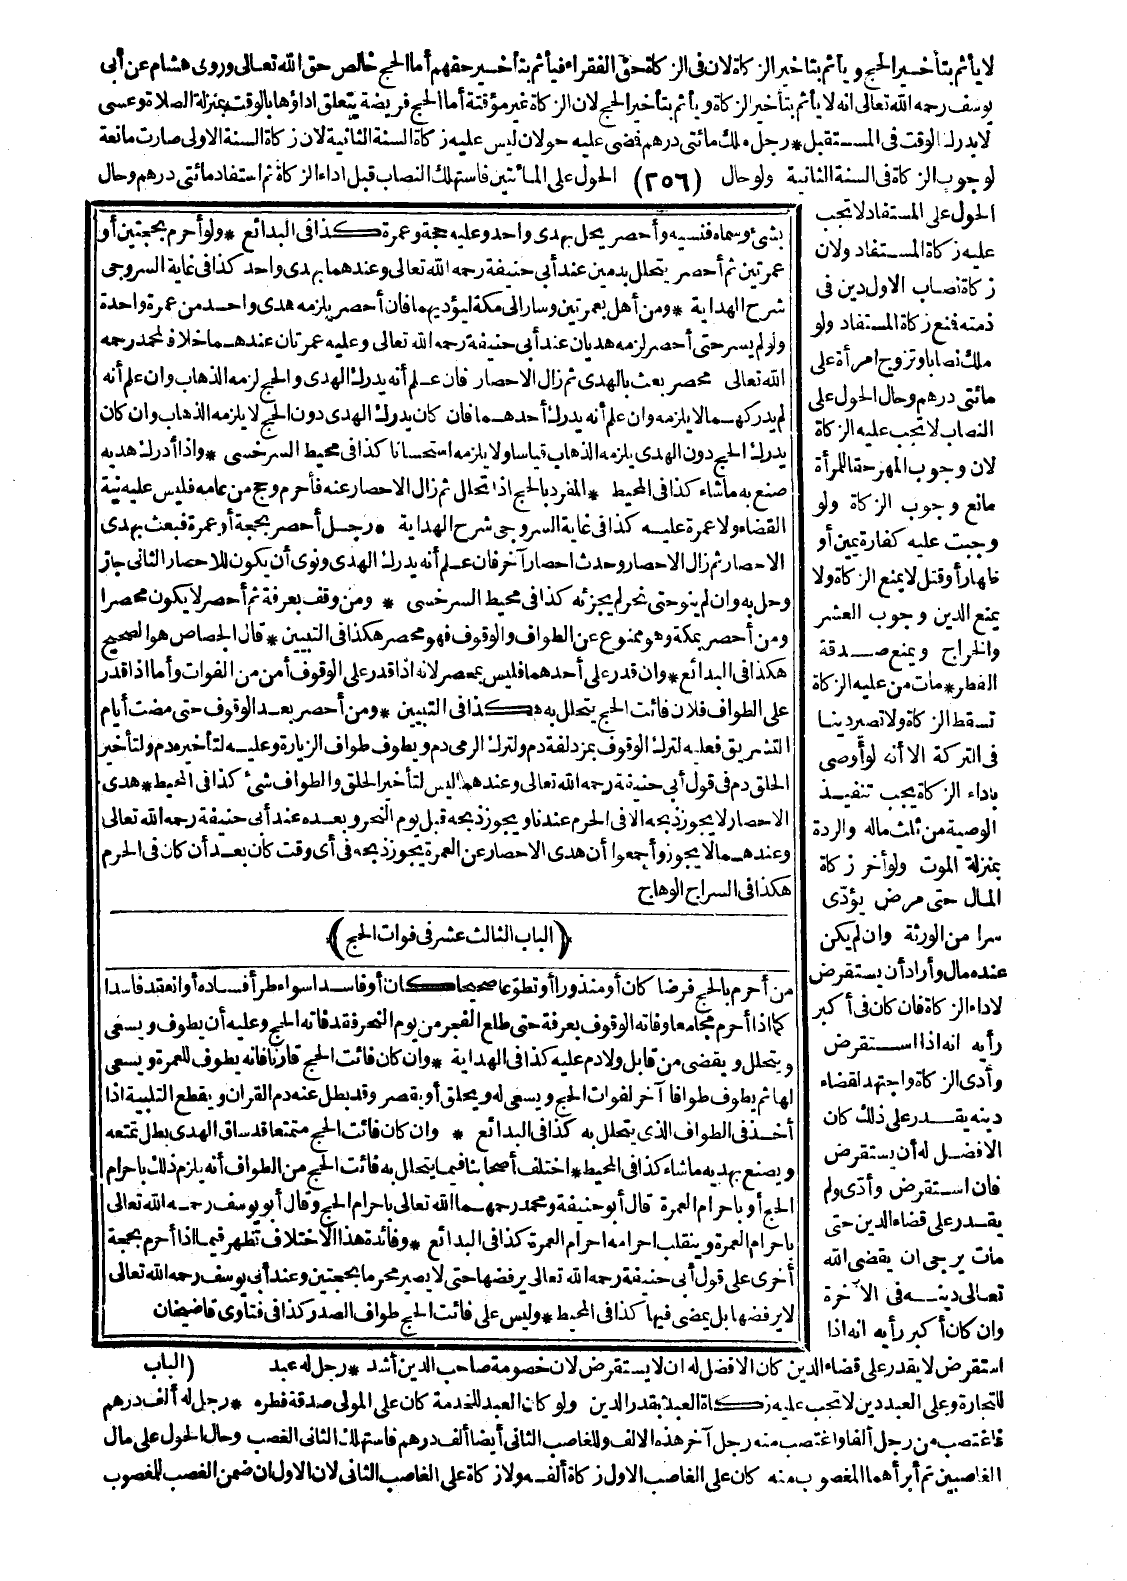 لا يأثم بتأخير الحج ويأثم بتأخير الزكاة لان في الزكاة حق الفقراء فيأثم بتأخير حقهم أما الحج خالص حق الله تعالى وروى هشام عن أبي
يوسف رحمه الله تعالى انه لا يأثم بتأخير الزكاة ويأثم بتأخير الحج لان الزكاة غير مؤقتة أما الحج فريضة يتعلق اداؤها بالوقت بمنزلة الصلاة وعسى
لا يدرك الوقت في المستقبل * رجل ملك مائتي درهم فمضى عليه حولان ليس عليه زكاة السنة الثانية لان زكاة السنة الاولى صارت مانعة
لوجوب الزكاة في السنة الثانية ولو حال (٢٥٦) الحول على المائتين فاستهلك النصاب قبل اداء الزكاة ثم استفاد مائتي درهم وحال
الحول على المستفاد لا تجب
عليه زكاة المستفاد ولان
زكاة نصاب الاول دين في
ذمته فمنع زكاة المستفاد ولو
ملك نصابا وتزوج امرأة على
مائتي درهم وحال الحول على
النصاب لا تجب عليه الزكاة
لان وجوب المهر حقا للمرأة
مانع وجوب الزكاة ولو
وجبت عليه كفارة يمين أو
ظهار أو قتل لا يمنع الزكاة ولا
يمنع الدين وجوب العشر
والخراج ويمنع صدقة
الفطر * مات من عليه الزكاة
تسقط الزكاة ولا تصير دينا
في التركة الا أنه لو أوصى
باداء الزكاة يجب تنفيذ
الوصية من ثلث ماله والردة
بمنزلة الموت ولو أخر زكاة
المال حتى مرض يؤدّى
سرا من الورثة وان لم يكن
عنده مال وأراد أن يستقرض
لاداء الزكاة فان كان في أكبر
رأيه انه اذا استقرض
وأدى الزكاة واجتهد لقضاء
دينه يقدر على ذلك كان
الافضل له أن يستقرض
فان استقرض وأدّى ولم
يقدر على قضاء الدين حتى
مات يرجى ان يقضى الله
تعالى دينه في الآخرة
وان كان أكبر رأيه انه اذا
بشئ وسماه فنسيه وأحصر يحل بهدى واحد وعليه حجة وعمرة كذا في البدائع * ولو أحرم بحجتين أو
عمرتين ثم أحصر يتحلل بدمين عند أبي حنيفة رحمه الله تعالى وعندهما بهدى واحد كذا في غاية السروجي
شرح الهداية * ومن أهل بعمرتين وسار الى مكة ليؤديهما فان أحصر يلزمه هدى واحد من عمرة واحدة
ولو لم يسر حتى أحصر لزمه هديان عند أبي حنيفة رحمه الله تعالى وعليه عمرتان عندهما خلافا لمحمد رحمه
الله تعالى محصر بعث بالهدى ثم زال الاحصار فان علم أنه يدرك الهدى والحج لزمه الذهاب وان علم أنه
لم يدركهما لا يلزمه وان علم أنه يدرك أحدهما فان كان يدرك الهدى دون الحج لا يلزمه الذهاب وان كان
يدرك الحج دون الهدى يلزمه الذهاب قياسا ولا يلزمه استحسانا كذا في محيط السرخسى * واذا أدرك هديه
صنع به ماشاء كذا في المحيط * المفرد بالحج اذا تحلل ثم زال الاحصار عنه فأحرم وحج من عامه فليس عليه نية
القضاء ولا عمرة عليه كذا في غاية السروجي شرح الهداية * رجل أحصر بحجة أو عمرة فبعث بهدى
الاحصار ثم زال الاحصار وحدث احصار آخر فان علم أنه يدرك الهدى ونوى أن يكون للاحصار الثاني جاز
وحل به وان لم ينو حتى نحر لم يجزئه كذا في محيط السرخسى * ومن وقف بعرفة ثم أحصر لا يكون محصرا
ومن أحصر بمكة وهو ممنوع عن الطواف والوقوف فهو محصر هكذا في التبيين * قال الجصاص هو الصحيح
هكذا في البدائع * وان قدر على أحدهما فليس بمحصر لانه اذا قدر على الوقوف أمن من الفوات وأما اذا قدر
على الطواف فلان فائت الحج يتحلل به هكذا في التبيين * ومن أحصر بعد الوقوف حتى مضت أيام
التشريق فعليه لترك الوقوف بمزدلفة دم ولترك الرمى دم ويطوف طواف الزيارة وعليه لتأخيره دم ولتأخير
الحلق دم في قول أبي حنيفة رحمه الله تعالى وعندهما ليس لتأخير الحلق والطواف شئ كذا في المحيط * هدى
الاحصار لا يجوز ذبحه الا في الحرم عندنا ويجوز ذبحه قبل يوم النحر وبعده عند أبي حنيفة رحمه الله تعالى
وعندهما لا يجوز وأجمعوا أن هدى الاحصار عن العمرة يجوز ذبحه في أي وقت كان بعد أن كان في الحرم
هكذا في السراج الوهاج
(الباب الثالث عشر في فوات الحج)
من أحرم بالحج فرضا كان أو منذورا أو تطوّعا صحيحا كان أو فاسدا سواء طرأ فساده أو انعقد فاسدا
كما اذا أحرم مجامعا وفاته الوقوف بعرفة حتى طلع الفجر من يوم النحر فقد فاته الحج وعليه أن يطوف ويسعى
ويتحلل ويقضى من قابل ولا دم عليه كذا في الهداية * وان كان فائت الحج قارنا فانه يطوف للعمرة ويسعى
لها ثم يطوف طوافا آخر لفوات الحج ويسعى له ويحلق أو يقصر وقد بطل عنه دم القران ويقطع التلبية اذا
أخذ في الطواف الذي يتحلل به كذا في البدائع * وان كان فائت الحج متمتعا قد ساق الهدى بطل تمتعه
ويصنع بهديه ماشاء كذا في المحيط * اختلف أصحابنا فيما يتحلل به فائت الحج من الطواف أنه يلزم ذلك باحرام
الحج أو باحرام العمرة قال أبو حنيفة ومحمد رحمهما الله تعالى باحرام الحج وقال أبو يوسف رحمه الله تعالى
باحرام العمرة وينقلب احرامه احرام العمرة كذا في البدائع * وفائدة هذا الاختلاف تظهر فيما اذا أحرم بحجة
أخرى على قول أبي حنيفة رحمه الله تعالى يرفضها حتى لا يصير محرما بحجتين وعند أبي يوسف رحمه الله تعالى
لا يرفضها بل يمضى فيها كذا في المحيط * وليس على فائت الحج طواف الصدر كذا في فتاوى قاضيخان
استقرض لا يقدر على قضاء الدين كان الافضل له ان لا يستقرض لان خصومة صاحب الدين أشد * رجل له عبد (الباب
للتجارة وعلى العبد دين لا تجب عليه زكاة العبد بقدر الدين ولو كان العبد للخدمة كان على المولى صدقة فطره * رجل له ألف درهم
فاغتصب من رجل ألفا واغتصب منه رجل آخر هذه الالف وللغاصب الثاني أيضا ألف درهم فاستهلك الثاني الغصب وحال الحول على مال
الغاصبين ثم أبرأهما المغصوب منه كان على الغاصب الاول زكاة ألفه ولا زكاة على الغاصب الثاني لان الاول ان ضمن الغصب للمغصوب